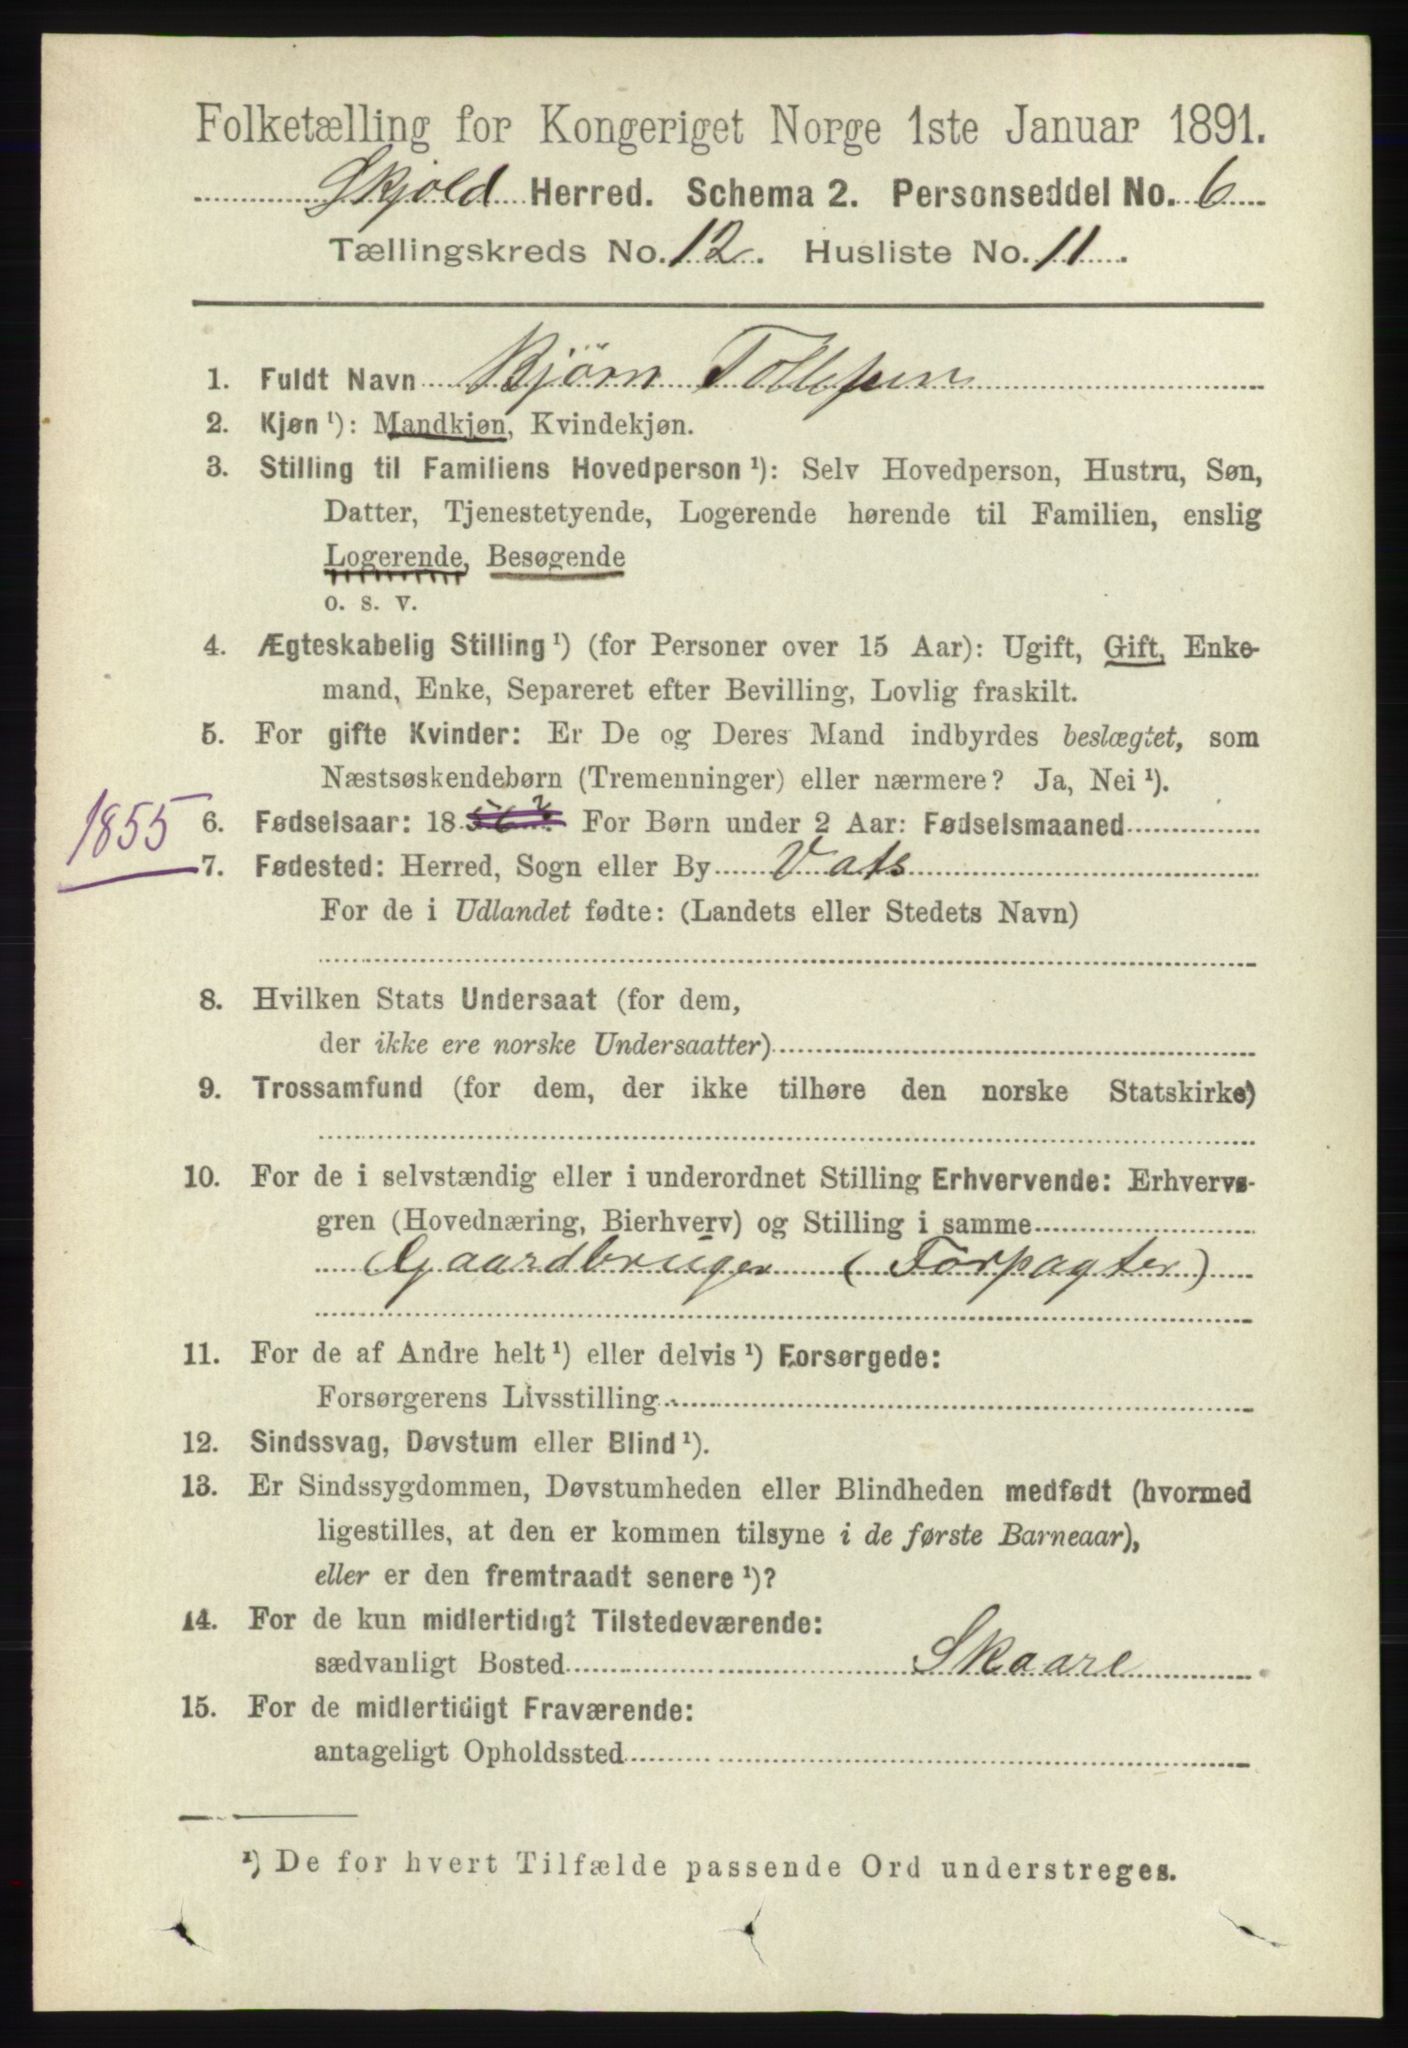 Folketælling for Kongeriget Norge 1ste Januar 1891.
Skjold Herred. Schema 2. Personseddel No. 6
Tællingskreds No. 12. Husliste No. 11.
1. Fuldt Navn Bjørn Tollefsen
2. Kjøn ¹): Mandkjøn, Kvindekjøn.
3. Stilling til Familiens Hovedperson ¹): Selv Hovedperson, Hustru, Søn,
Datter, Tjenestetyende, Logerende hørende til Familien, enslig
Logerende, Besøgende
o. s. v.
4. Ægteskabelig Stilling ¹) (for Personer over 15 Aar): Ugift, Gift, Enke-
mand, Enke, Separeret efter Bevilling, Lovlig fraskilt.
5. For gifte Kvinder: Er De og Deres Mand indbyrdes beslægtet, som
Næstsøskendebørn (Tremenninger) eller nærmere? Ja, Nei ¹).
1855 6. Fødselsaar: 18 56? For Børn under 2 Aar: Fødselsmaaned
7. Fødested: Herred, Sogn eller By Vats
For de i Udlandet fødte: (Landets eller Stedets Navn)
8. Hvilken Stats Undersaat (for dem,
der ikke ere norske Undersaatter)
9. Trossamfund (for dem, der ikke tilhøre den norske Statskirke)
10. For de i selvstændig eller i underordnet Stilling Erhvervende: Erhvervs-
gren (Hovednæring, Bierhverv) og Stilling i samme
Gaardbruger (Forpagter)
11. For de af Andre helt ¹) eller delvis ¹) Forsørgede:
Forsørgerens Livsstilling
12. Sindssvag, Døvstum eller Blind ¹).
13. Er Sindssygdommen, Døvstumheden eller Blindheden medfødt (hvormed
ligestilles, at den er kommen tilsyne i de første Barneaar),
eller er den fremtraadt senere ¹)?
14. For de kun midlertidigt Tilstedeværende:
sædvanligt Bosted Skaare
15. For de midlertidigt Fraværende:
antageligt Opholdssted
¹) De for hvert Tilfælde passende Ord understreges.